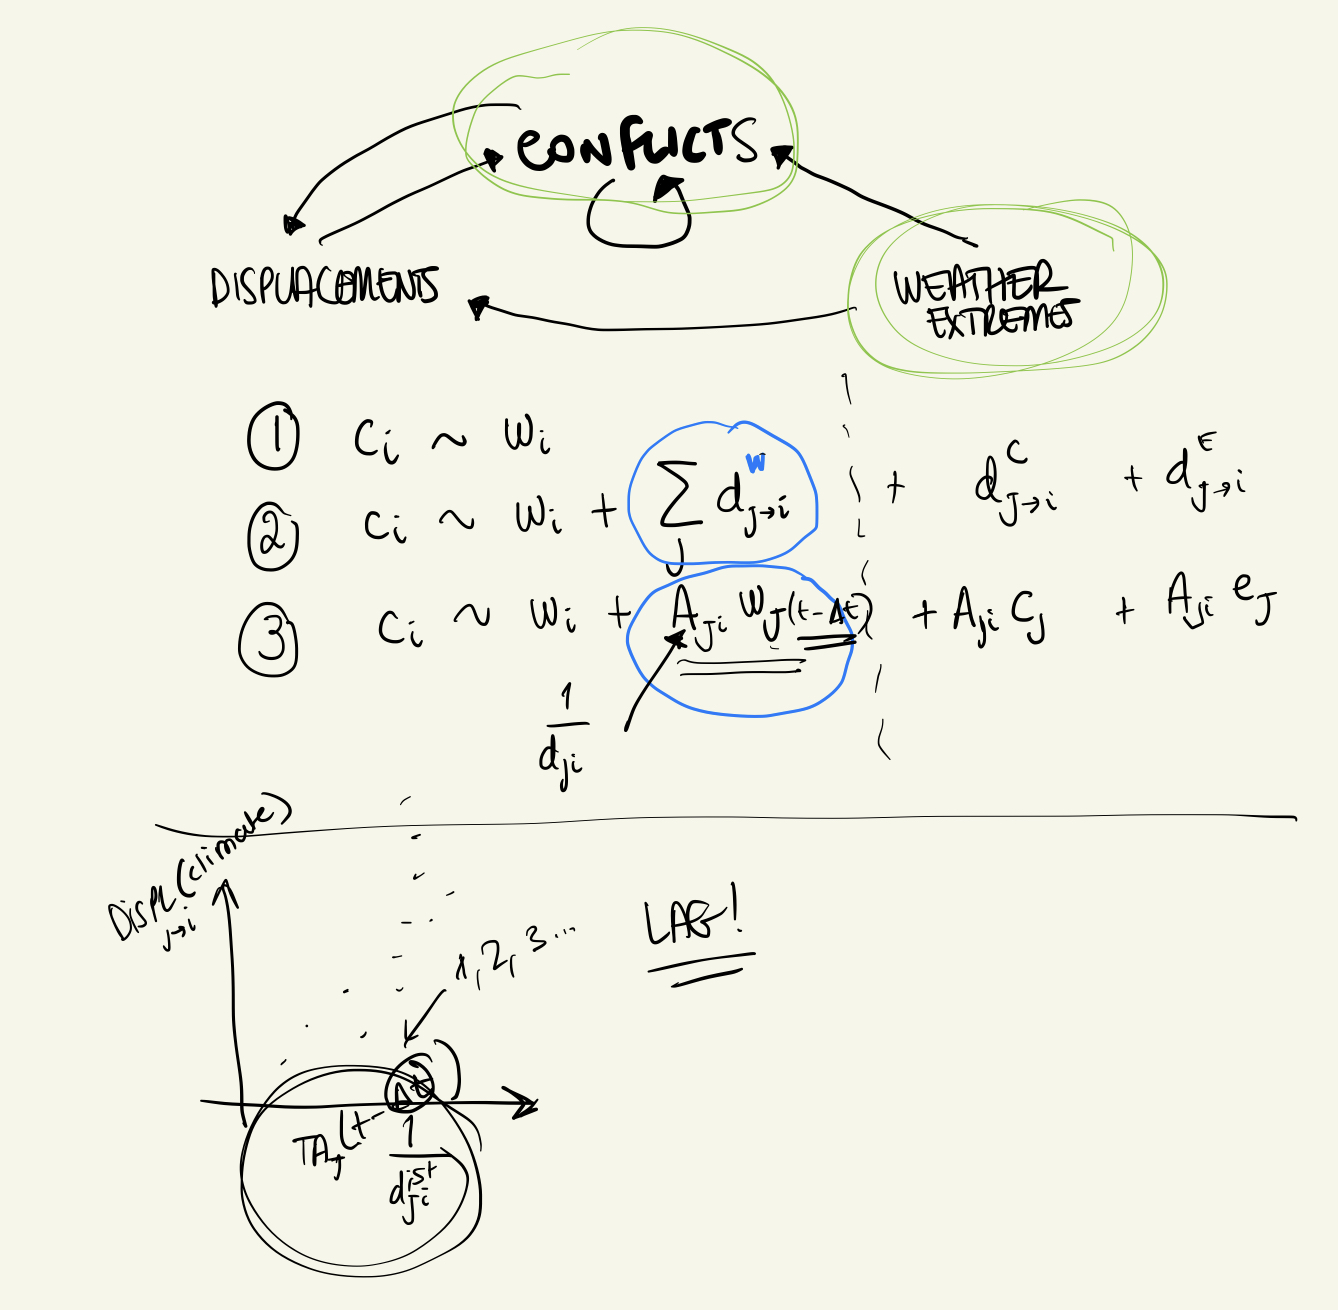 CONFLICTS
DISPLACEMENTS
WEATHER
EXTREMES
① Ci ~ Wi
② Ci ~ Wi + Σj d^W_j→i + d^C_J→i + d^E_J→i
③ Ci ~ Wi + A_ji W_J(t-Δt) + A_ji C_J + A_ji e_J
1/d_ji
DISPL_J→i (climate)
1, 2, 3...
LAG!
TA_J(t-Δt)
1/d^ist_ji